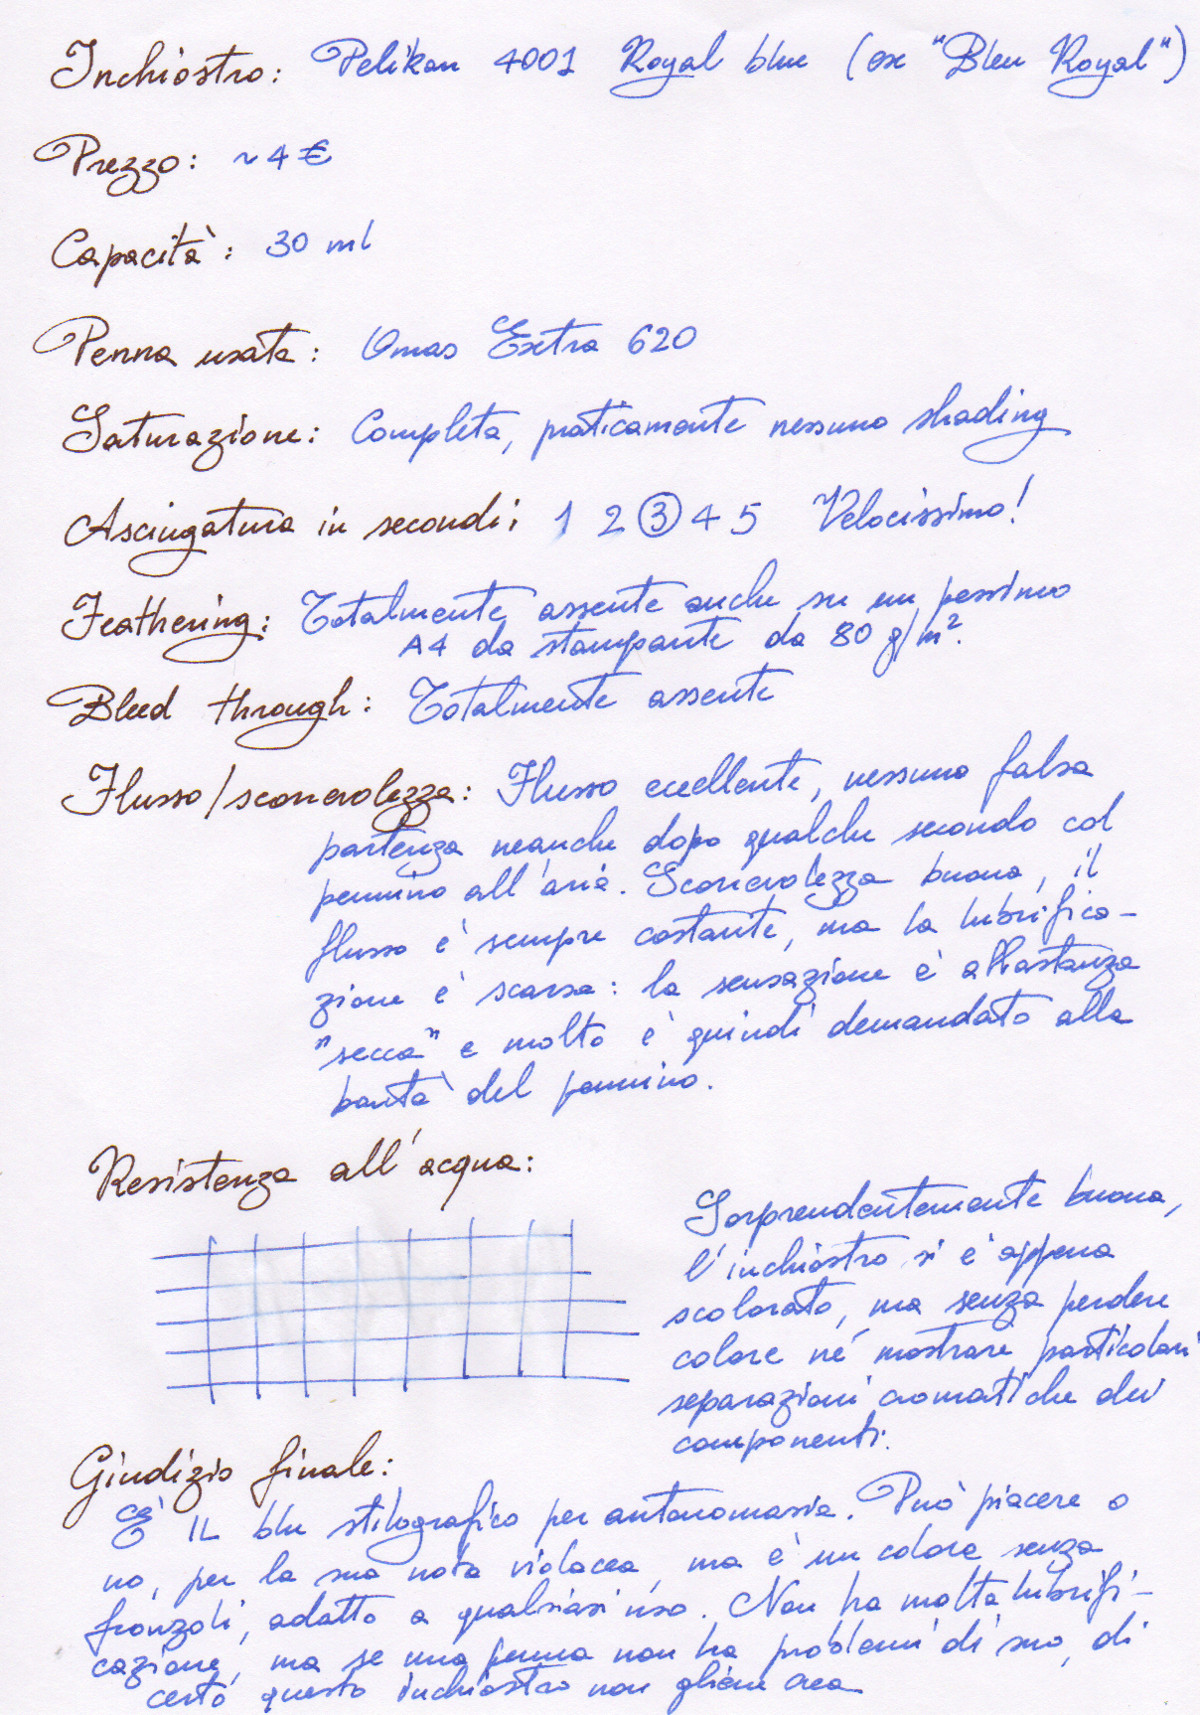 Inchiostro: Pelikan 4001 Royal blue (ex "Bleu Royal")
Prezzo: ~4€
Capacità: 30 ml
Penna usata: Omas Extra 620
Saturazione: Completa, praticamente nessuno shading
Asciugatura in secondi: 1 2 3 4 5 Velocissimo!
Feathering: Totalmente assente anche su un pessimo
A4 da stampante da 80 g/m².
Bleed through: Totalmente assente
Flusso/scorrevolezza: Flusso eccellente, nessuna falsa
partenza neanche dopo qualche secondo col
pennino all'aria. Scorrevolezza buona, il
flusso è sempre costante, ma la lubrifica-
zione è scarsa: la sensazione è abbastanza
"secca" e molto è quindi demandato alla
bontà del pennino.
Resistenza all'acqua:
Sorprendentemente buona,
l'inchiostro si è appena
scolorato, ma senza perdere
colore né mostrare particolari
separazioni cromatiche dei
componenti.
Giudizio finale:
È IL blu stilografico per antonomasia. Può piacere o
no, per la sua nota violacea, ma è un colore senza
fronzoli, adatto a qualsiasi uso. Non ha molta lubrifi-
cazione, ma se una penna non ha problemi di suo, di
certo questo inchiostro non gliene crea